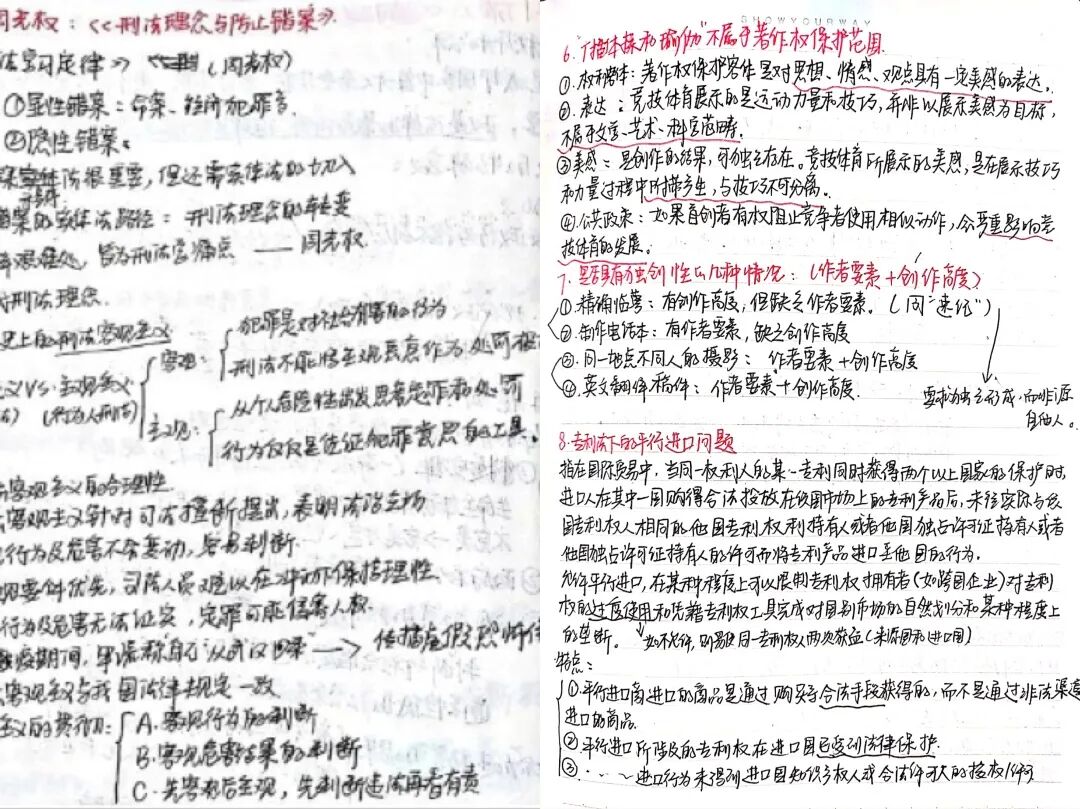 周光权：《刑法理念与防止错案》
(周光权)
①显性错案：命案、经济犯罪等
②隐性错案。
很重要,但还需实体法的切入
实体法路径：刑法理念的转变
艰难处,皆为刑法営痛点 —— 周光权
刑法理念.
上的刑法客观主义
VS. 主观主义
(行为人刑法)
客观：
犯罪是对社会有害的行为
刑法不能将主观恶意作为处罚根
主观：
从个人危险性出发思考定罪和处罚
行为仅仅是征表犯罪意思的工具。
客观主义的合理性
客观主义针对司法擅断提出,表明法治立场
行为及危害不会变动,容易判断.
观要件优先,司法人员难以在冲动下保持理性.
行为及危害无法证实,定罪可能侵害人权.
疫期间,早谎称自己从武汉归来 ——>
客观主义与我国法律规定一致
主义的贯彻：
A. 客观行为的判断
B. 客观危害结果的判断
C. 先客观后主观,先判断违法再看有责
SHOWYOURWAY
6.「广播体操和瑜伽"不属于著作权保护范围.
①.权利客体：著作权保护客体是对思想、情感、观点具有一定美感的表达。
②.表达：竞技体育展示的是运动力量和技巧,并非以展示美感为目标,
不属于文学、艺术、科学范畴.
③美感：是创作的结果,可独立存在。竞技体育所展示的美感,是在展示技巧
和力量过程中附带产生,与技巧不可分离。
④.公共政策：如果首创者有权阻止竞争者使用相似动作,会严重影响竞
技体育的发展。
7.是否具有独创性的几种情况：(作者要素+创作高度)
①.精确临摹：有创作高度,但缺乏作者要素。(同"速记")
②.制作电话本：有作者要素,缺乏创作高度
③.同一地点不同人的摄影：作者要素+创作高度
④.英文翻译稿件：作者要素+创作高度.
要求独立形成,而非源
自他人。
8.专利法下的平行进口问题
指在国际贸易中,当同一权利人的某一专利同时获得两个以上国家的保护时,
进口人在其中一国购得合法投放在该国市场上的专利产品后,未经实际与该
国专利权人相同的他国专利权利持有人或者他国独占许可证持有人或者
他国独占许可证持有人的许可而将专利产品进口至他国的行为。
允许平行进口,在某种程度上可以限制专利权拥有者(如跨国企业)对专利
权的过度使用和凭藉专利权工具完成对国别市场的自然划分和某种程度上
的垄断。
如不允许,则易使同一专利权人两次获益(来源国和进口国)
特点：
①平行进口商进口的商品是通过购买等合法手段获得的,而不是通过非法渠道
进口的商品.
②平行进口所涉及的专利权在进口国已受到法律保护.
③.……进口行为未得到进口国知识产权人或合法许可人的授权